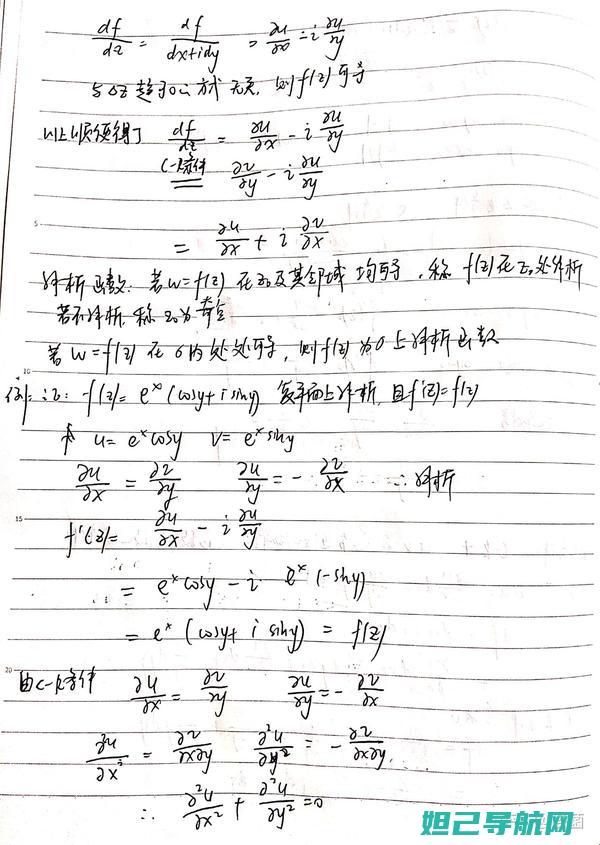 df/dz = df/dx+idy = ∂u/∂x - i ∂u/∂y
与Δz趋于0的方式无关，则f(z)可导
以上顺便得了 df/dz = ∂u/∂x - i ∂u/∂y
C-R条件 ∂v/∂y - i ∂u/∂y
5
= ∂u/∂x + i ∂v/∂x
解析函数：若w=f(z) 在z₀及其邻域均可导，称 f(z)在z₀处解析
若不解析，称z₀为奇点
若 w=f(z) 在σ内处处可导，则f(z)为σ上解析函数
10
例：证：f(z)= eˣ(cosy+isiny) 复平面上解析，且f'(z)=f(z)
u= eˣcosy v= eˣsiny
∂u/∂x = ∂v/∂y ∂u/∂y = - ∂v/∂x ∴解析
15
f'(z)= ∂u/∂x - i ∂u/∂y
= eˣcosy - i eˣ(-siny)
= eˣ(cosy+ i siny) = f(z)
20
由C-R条件 ∂u/∂x = ∂v/∂y ∂u/∂y = - ∂v/∂x
∂²u/∂x² = ∂v/∂x∂y ∂²u/∂y² = - ∂v/∂x∂y
∴ ∂²u/∂x² + ∂²u/∂y² =0
妲己导航网